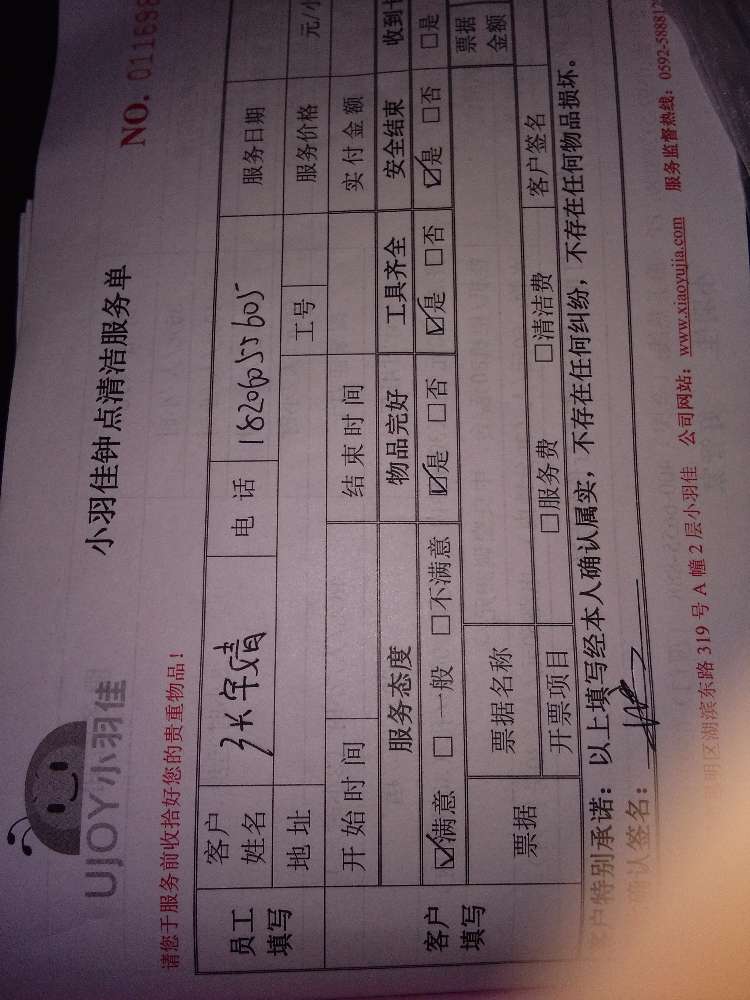 UJOY小羽佳
小羽佳钟点清洁服务单
NO. 011698
请您于服务前收拾好您的贵重物品！
员工填写 客户姓名 张宇婧 电话 18206055605 服务日期
地址 工号 服务价格 元/小
客户填写 开始时间 结束时间 实付金额
服务态度 物品完好 工具齐全 安全结束 收到
☑满意 □一般 □不满意 ☑是 □否 ☑是 □否 ☑是 □否 □是
票据 票据名称 票据金额
开票项目 □服务费 □清洁费 客户签名
客户特别承诺：以上填写经本人确认属实，不存在任何纠纷，不存在任何物品损坏。
确认签名：
明区湖滨东路 319 号 A 幢 2 层小羽佳 公司网站：www.xiaoyujia.com 服务监督热线：0592-588812